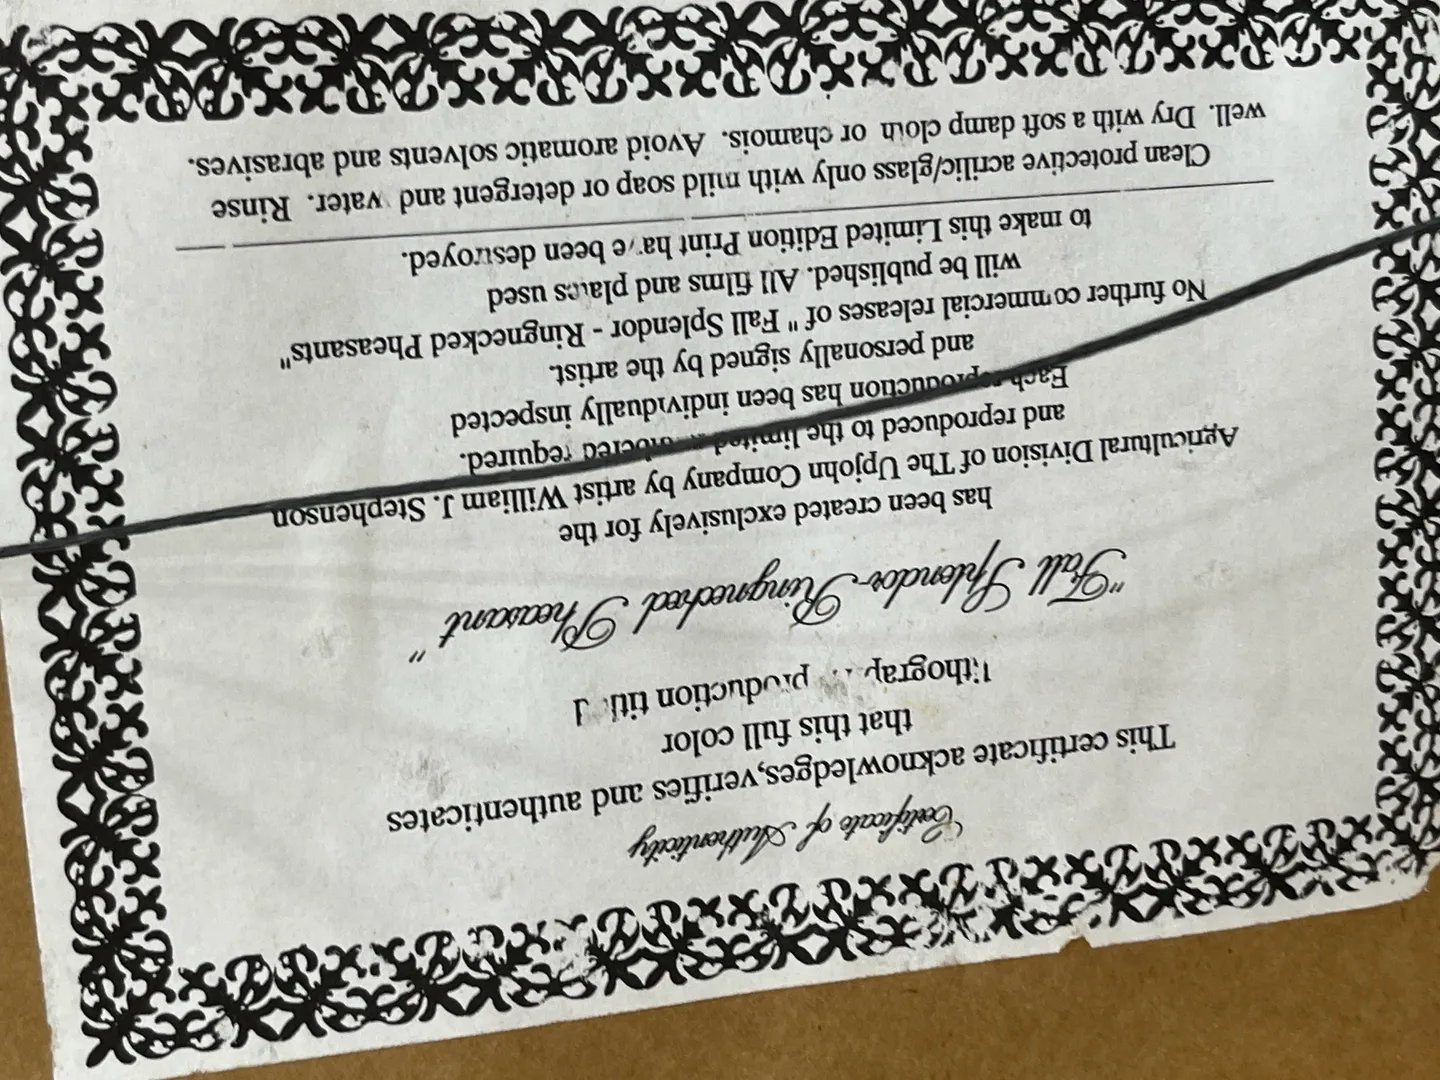 Certificate of Authenticity
This certificate acknowledges,verifies and authenticates
that this full color
production
"Fall Splendor-Ringnecked Pheasant"
has been created exclusively for the
Agricultural Division of The Upjohn Company by artist William J. Stephenson
and reproduced to the limited required.
Each reproduction has been individually inspected
and personally signed by the artist.
No further commercial releases of " Fall Splendor - Ringnecked Pheasants"
will be published. All films and plates used
to make this Limited Edition Print have been destroyed.
Clean protective acrilic/glass only with mild soap or detergent and water. Rinse
well. Dry with a soft damp cloth or chamois. Avoid aromatic solvents and abrasives.